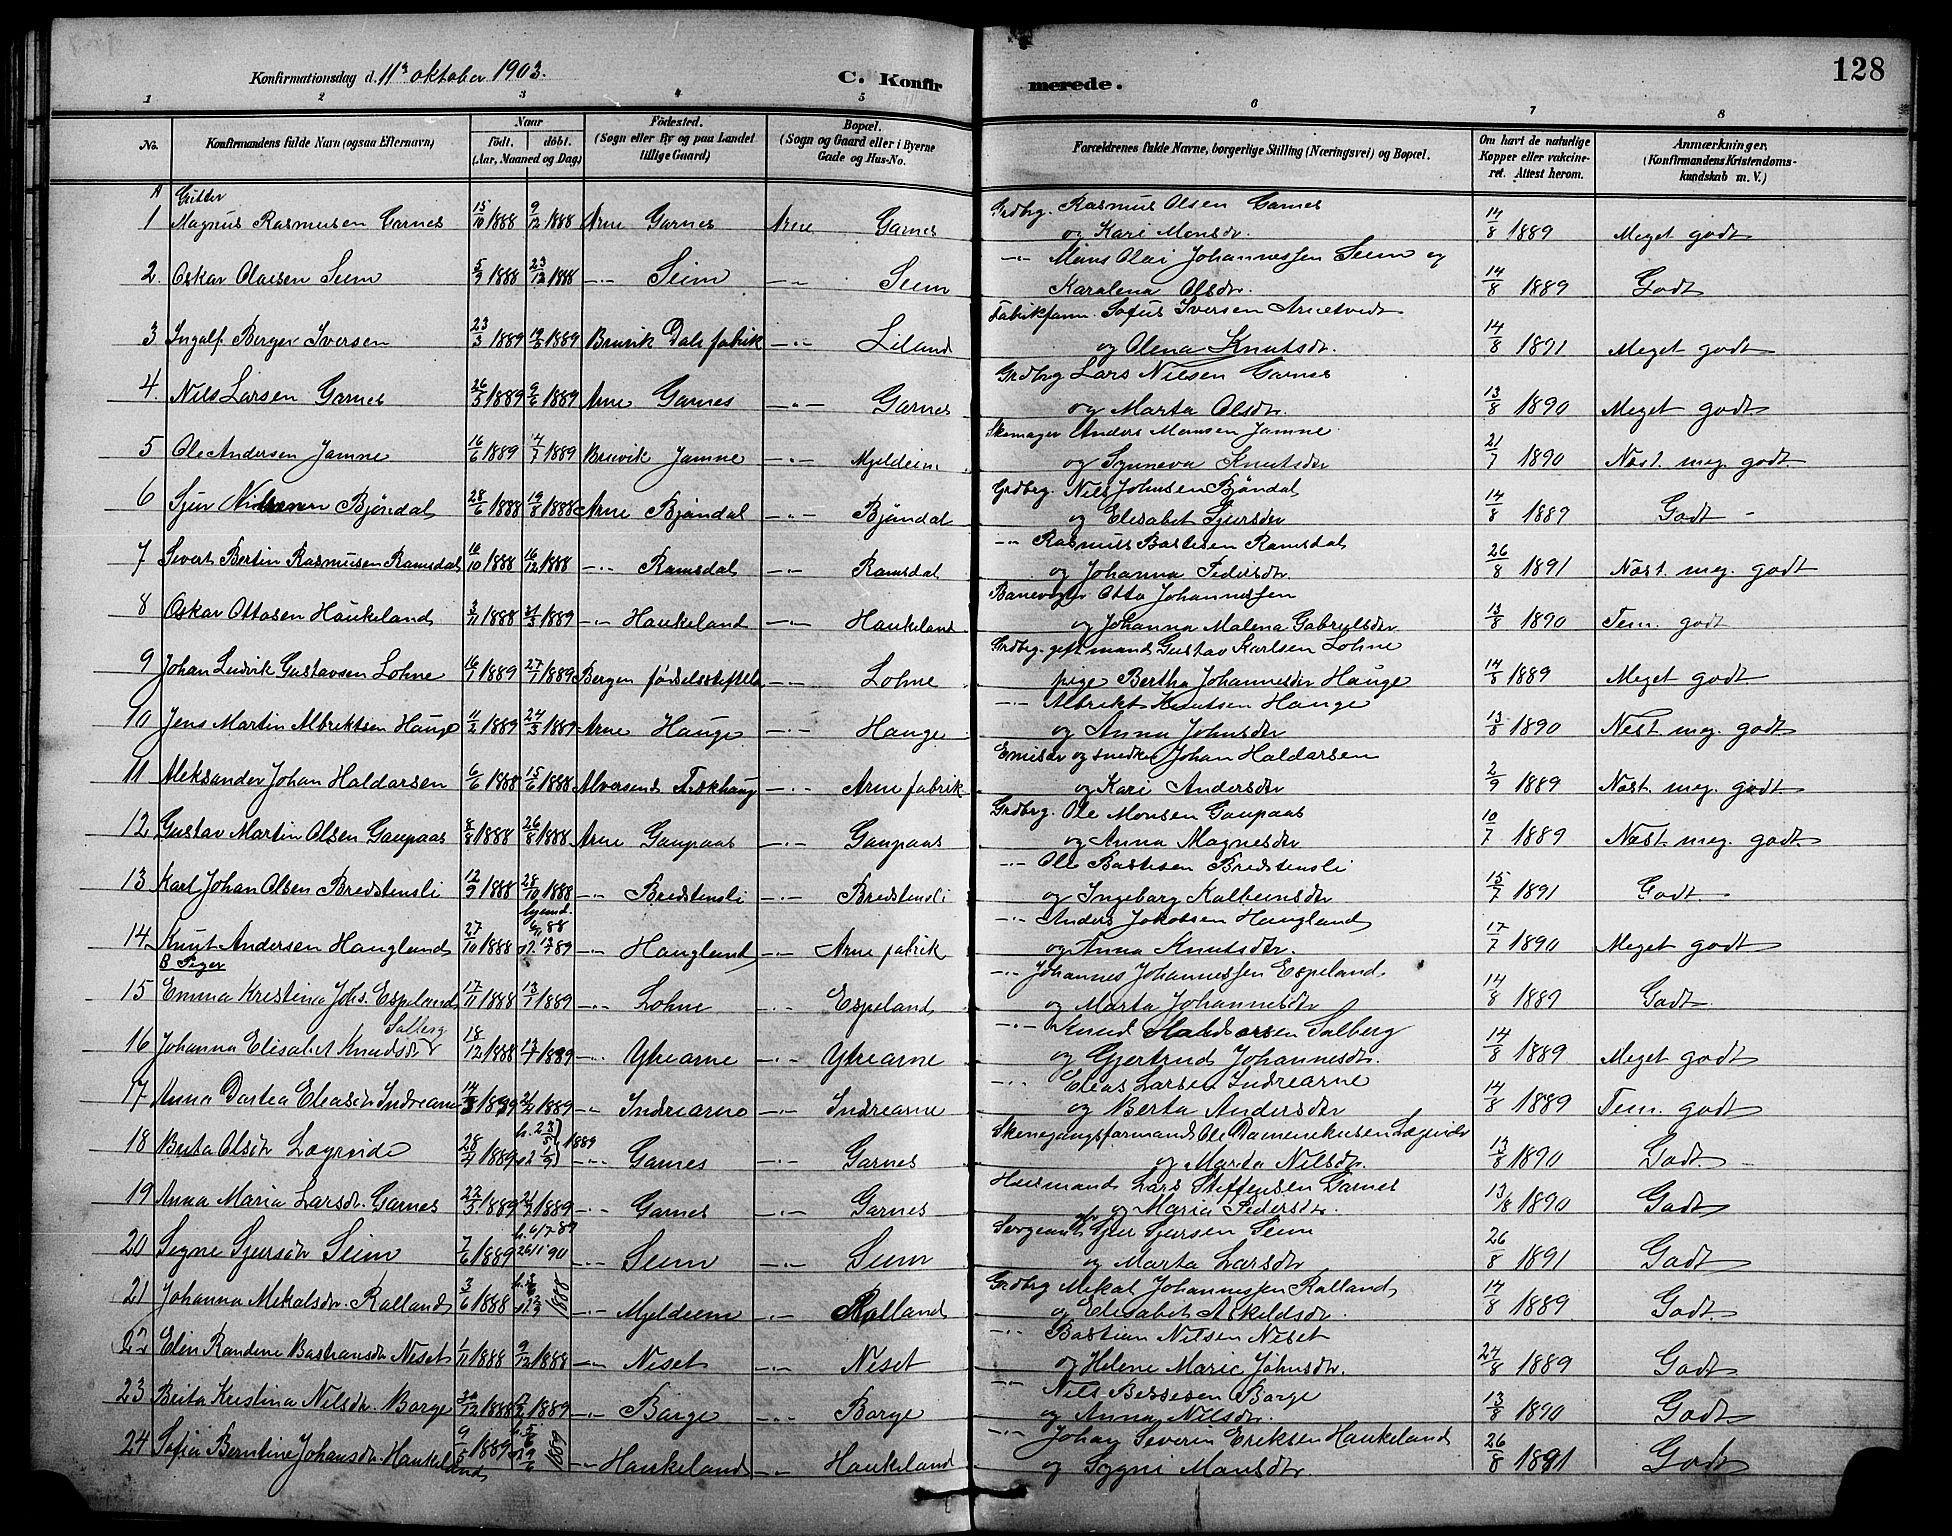 Konfirmationsdag d. 11te oktober 1903.
C. Konfirmerede.
128
1 2 3 4 5 6 7 8
No. Konfirmandens fulde Navn (ogsaa Efternavn) Naar födt. döbt. (Aar, Maaned og Dag) Födested. (Sogn eller By og paa Landet tillige Gaard) Bopæl. (Sogn og Gaard eller i Byerne Gade og Hus-No. Forældrenes fulde Navne, borgerlige Stilling (Næringsvei) og Bopæl. Om havt de naturlige Kopper eller vakcineret. Attest herom. Anmærkninger, (Konfirmandens Kristendomskundskab m. V.)
A Gutter
1 Magnus Rasmusen Garnes 15/10 1888 9/12 1888 Arne Garnes Arne Garnes Grdbrg. Rasmus Olsen Garnes og Kari Monsdr. 14/8 1889 Meget godt
2. Oskar Olaisen Seim 5/9 1888 23/12 1888 -"- Seim -"- Seim -"- Mons Olai Johannessen Seim og Karalena Olsdr. 14/8 1889 Godt
3 Ingolf Berger Iversen 23/3 1889 1889 Bruvik Dale fabrik -"- Liland Fabrikform. Sofus Iversen Arnetvedt og Olena Knutsdr. 14/8 1891 Meget godt
4. Nils Larsen Garnes 26/5 1889 9/6 1889 Arne Garnes -"- Garnes Grdbrg Lars Nilsen Garnes og Marta Olsdr. 13/8 1890 Meget godt
5 Ole Andersen Jamne 16/6 1889 7/7 1889 Bruvik Jamne -"- Mjeldeim Skomager Anders Monsen Jamne og Synneva Knutsdr 21/7 1890 Næst. meg. godt.
6 Sjur Nilsen Bjöndal 28/6 1888 19/8 1888 Arne Bjöndal -"- Bjöndal Grdbrg. Nils Johnsen Bjöndal og Elisabet Sjursdr 14/8 1889 Godt -
7 Sivert Bertin Rasmusen Ramsdal 16/10 1888 16/12 1888 -"- Ramsdal -"- Ramsdal -"- Rasmus Bastesen Ramsdal og Johanna Pedersdr. 26/8 1891 Næst. meg. godt
8 Oskar Ottosen Haukeland 3/11 1888 1889 -"- Haukeland -"- Haukeland Banevogter Otto Johannessen og Johanna Malena Gabrielsdr 13/8 1890 Tem. godt
9 Johan Ludvik Gustavsen Lohne 16/7 1889 27/7 1889 Bergen födselsstiftels -"- Lohne Grdbrg. gift mand Gustav Karlsen Lohne pige Bertha Johannesdr Hauge 14/8 1889 Meget godt
10 Jens Martin Albriktsen Hauge 11/2 1889 24/3 1889 Arne Hauge -"- Hauge -"- Albrikt Knutsen Hauge og Anna Johnsdr 13/8 1890 Nest meg. godt
11 Aleksander Johan Haldorsen 6/6 1888 15/6 1888 Alversund -"- Arne fabrik Emisær og snedker Johan Haldorsen og Kari Andersdr 2/9 1889 Næst. meg. godt.
12 Gustav Martin Olsen Gaupaas 8/8 1888 26/8 1888 Arne Gaupaas -"- Gaupaas Grdbrg. Ole Monsen Gaupaas og Anna Magnesdr 10/7 1889 Næst meg. godt
13 Karl Johan Olsen Bredstensli 12/9 1888 28/10 1888 -"- Bredstensli -"- Bredstensli -"- Ole Bastesen Bredstensli og Ingeborg Kolbeinsdr 15/7 1891 Godt.
14 Knut Andersen Haugland 27/10 1888 hjemd. 88 89 -"- Haugland -"- Arne fabrik -"- Anders Jakobsen Haugland og Anna Knutsdr. 17/7 1890 Meget godt
B Piger
15 Emma Kristina Johs. Espeland 17/11 1888 13/7 1889 -"- Lohne -"- Espeland -"- Johannes Johannessen Espeland og Marta Johannesdr 14/8 1889 Godt.
16 Johanna Elisabet Knudsdr Salberg 18/12 1888 13/7 1889 -"- Ytrearne -"- Ytrearne -"- Knud Haldorsen Salberg og Gjertrud Johannesdr. 14/8 1889 Meget godt
17 Anna Dortea Eliasdr Indrearne 1889 1889 -"- Indrearne -"- Indrearne -"- Elias Larsen Indrearne og Berta Andersdr 14/8 1889 Tem. godt
18 Brita Olsdr Lægreide 28/4 1889 h. 23/5 1889 -"- Garnes -"- Garnes Skinegangsformand Ole Lægreide og Marta Nilsdr. 13/8 1890 Godt. -
19 Anna Maria Larsdr. Garnes 22/5 1889 1889 -"- Garnes -"- Garnes Husmand Lars Steffensen Garnes og Maria Pedersdr. 13/8 1890 Godt
20 Signe Sjursdr Seim 7/6 1889 h. 6/7-89 26/1 90 -"- Seim -"- Seim Sergeant Sjur Sjursen Seim og Marta Larsdr 26/8 1891 Godt
21 Johanna Mikalsdr. Rolland 3/6 1888 1888 -"- Mjeldeim -"- Rolland Grdbrg Mikal Johannessen Rolland og Elisabet Askildsdr. 14/8 1889 Godt
22 Elin Randine Bastiansdr Neset 1/11 1888 9/12 1888 -"- Neset -"- Neset -"- Bastian Nilsen Neset og Helene Marie Johnsdr. 24/8 1889 Godt
23 Brita Kristina Nilsdr. Borge 1888 1889 -"- Borge -"- Borge -"- Nils Bessesen Borge og Anna Nilsdr. 13/8 1890 Godt
24 Sofia Berntine Johansdr. Haukeland 1889 1889 -"- Haukeland -"- Haukeland -"- Johan Severin Eriksen Haukeland og Sygni Mansdr. 26/8 1891 Godt